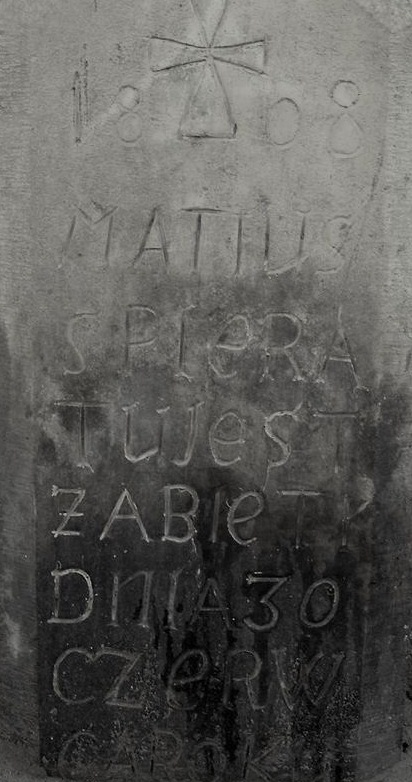 1808
MATIUS
SPIeRA
TUJeST
ZABIeTY
DNIA30
CZeRW
CAROKU